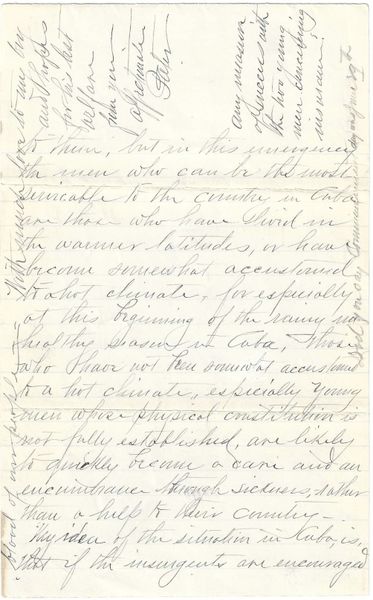 to them, but in this emergency
the men who can be the most
servicable to the country in Cuba
are those who have lived in
the warmer latitudes, or have
become somewhat accustomed
to a hot climate, for especially
at this beginning of the rainy un
healthy season in Cuba, those
who have not been somewhat accustomed
to a hot climate, especially young
men whose physical constitution is
not fully established, are likely
to quickly become a care and an
encumbrance through sickness, rather
than a help to their country—
My idea of the situation in Cuba, is,
that if the insurgents are encouraged
blood of our people—
With love to my
and hopes
for his best
welfare
your
affectionate
any measure
of success with
the
men concerning
Commencement